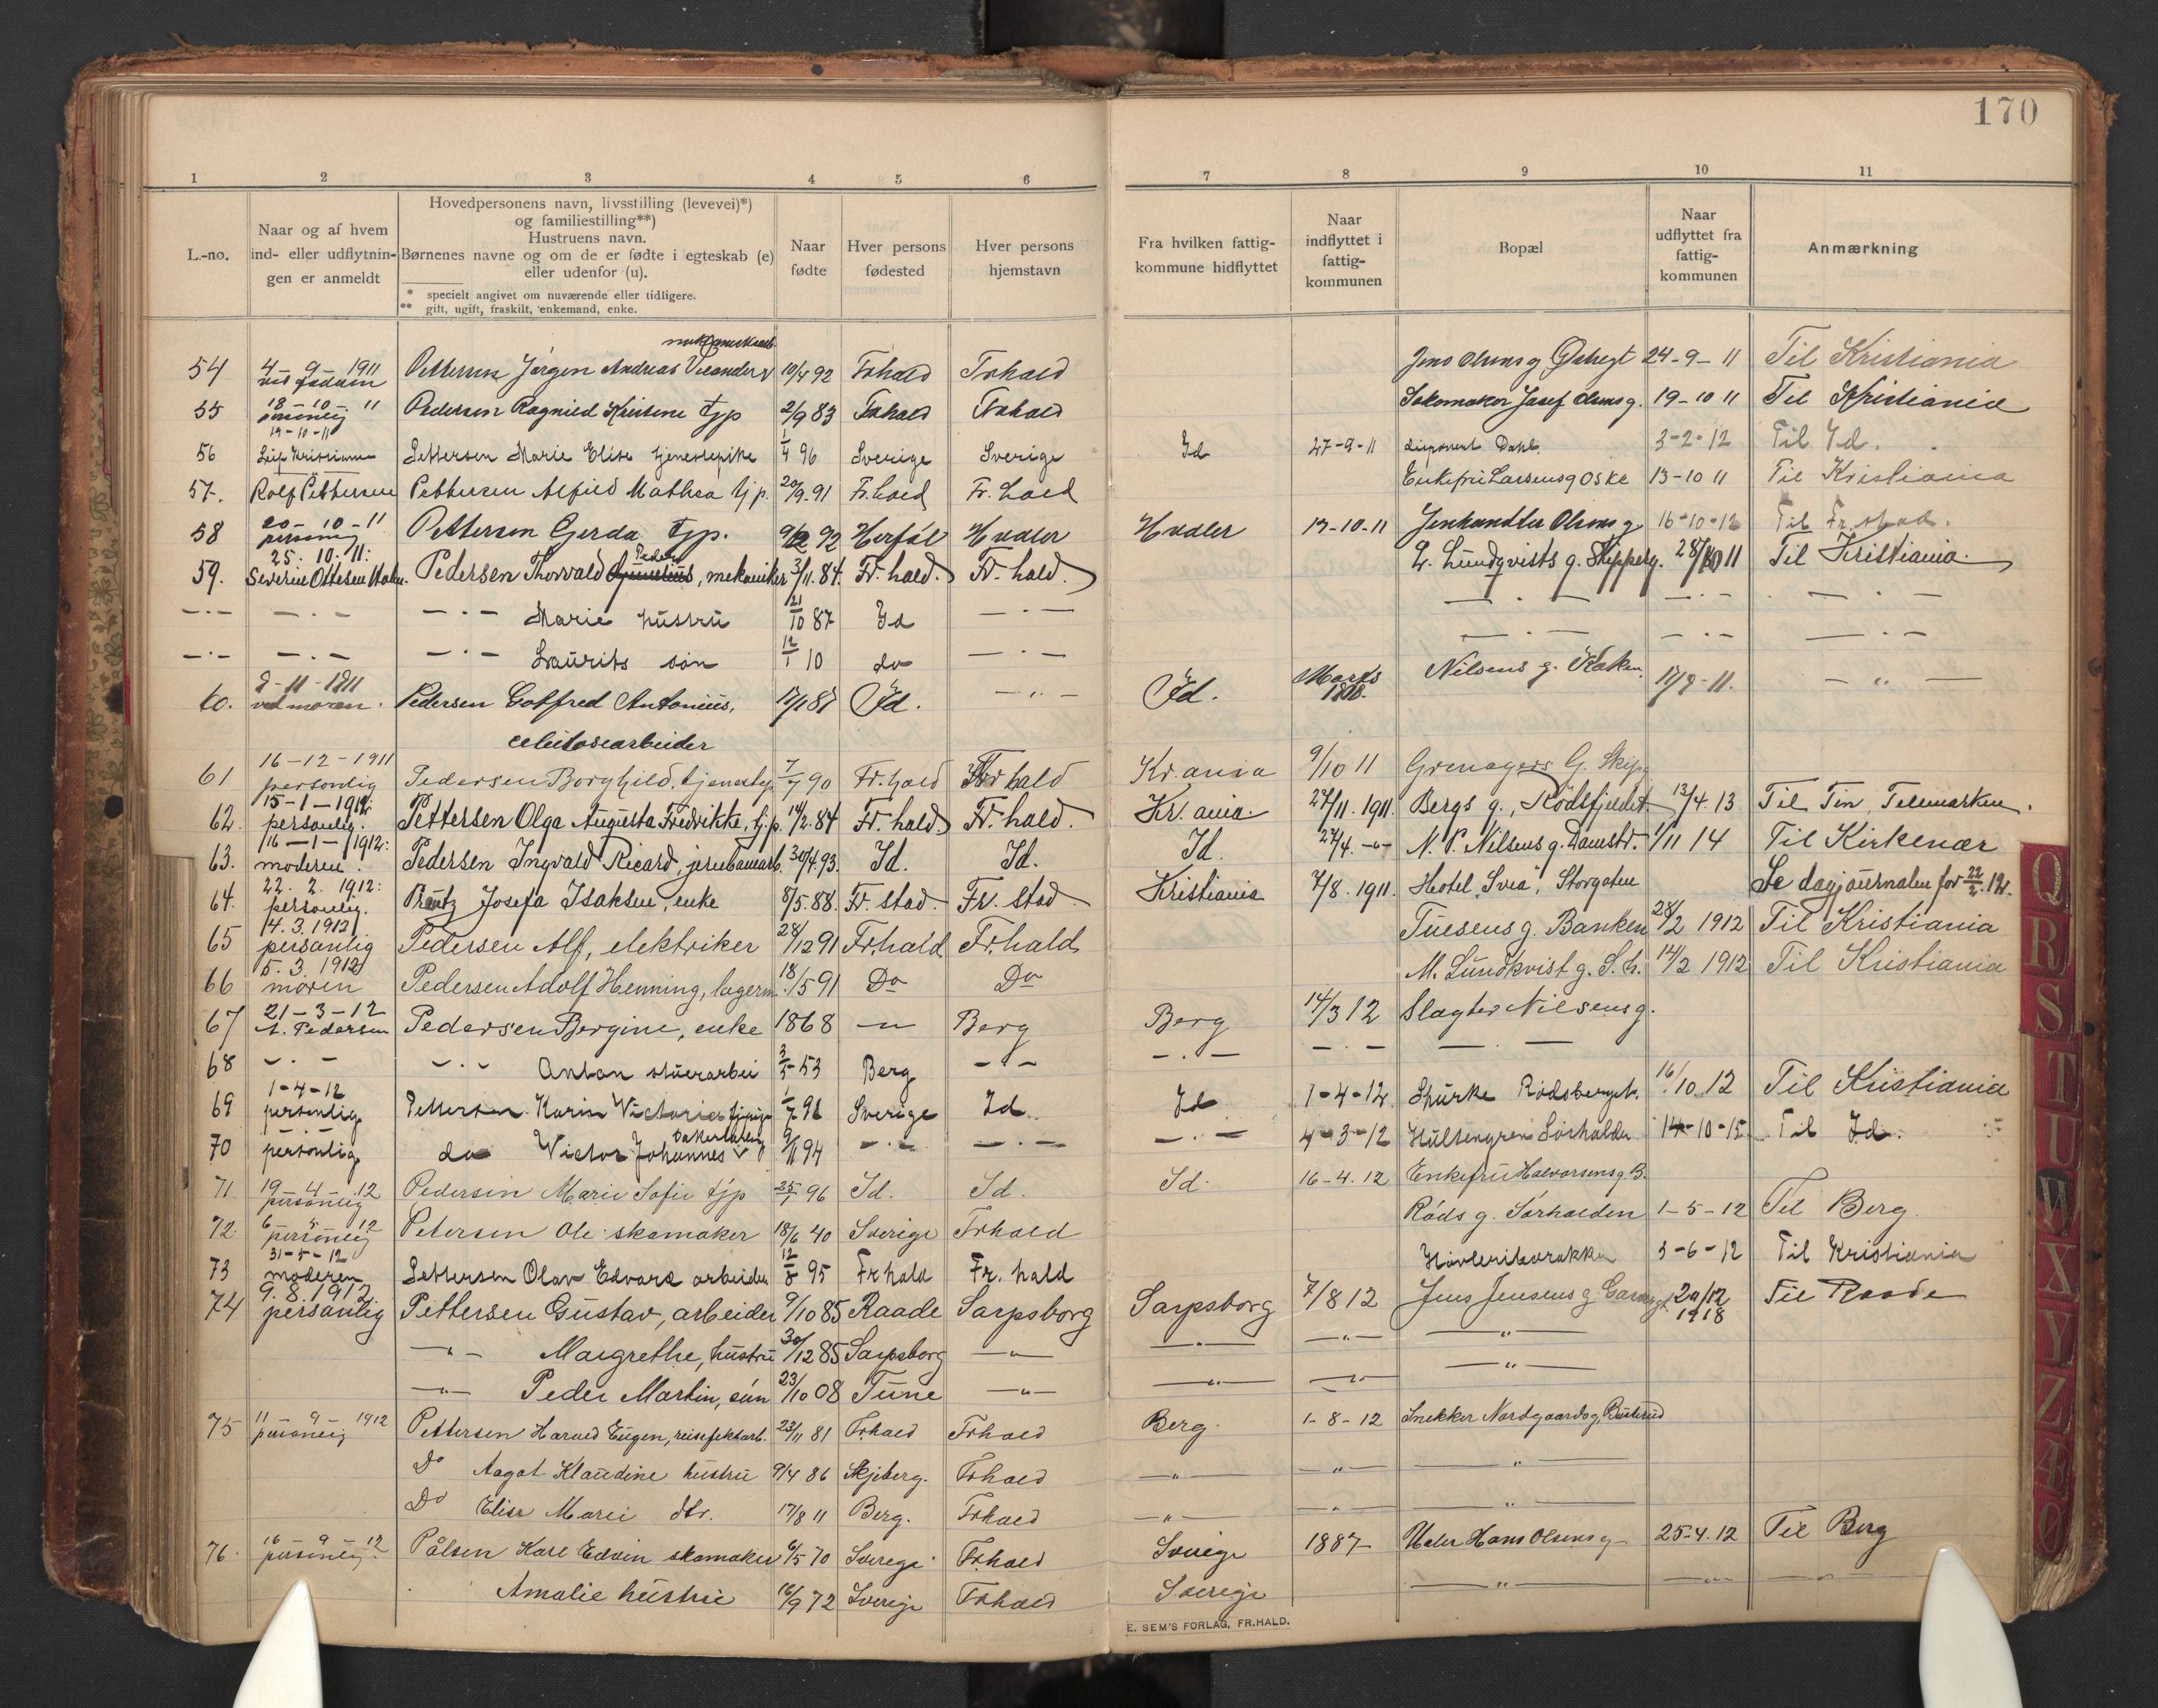 170
1 2 3 4 5 6 7 8 9 10 11
L.-no.
Naar og af hvem ind- eller udflytnin- gen er anmeldt
Hovedpersonens navn, livsstilling (levevei)*)
og familiestilling**)
Hustruens navn.
Børnenes navne og om de er fødte i egteskab (e)
eller udenfor (u).
* specielt angivet om nuværende eller tidligere.
** gift, ugift, fraskilt, enkemand, enke.
Naar fødte
Hver persons fødested
Hver persons hjemstavn
Fra hvilken fattig- kommune hidflyttet
Naar indflyttet i fattig- kommunen
Bopæl
Naar udflyttet fra fattig- kommunen
Anmærkning
54 4-9-1911 Pettersen Jørgen Andreas 10/4 92 Frhald Frhald Jens Olsens g 24-9-11 Til Kristiania
55 18-10-11 personlig Pedersen Ragnild Kristine tjp 2/9 83 Frhald Frhald Josef Olsens g. 19-10 11 Til Kristiania
56 19-10-11 Leif Kristiansen Pettersen Marie Elise tjenestepike 1/4 96 Sverige Sverige Id 27-9-11 Disponent Dahl. 3-2-12 Til Id.
57. Rolf Pettersen Pettersen Alfild Mathea tjp. 20/9.91 Fr.hald Fr.hald Enkefru Larsens g Oske 13-10 11 Til Kristiania
58 20-10-11 personlig Pettersen Gerda tjp. 9/12 92 Herføl Hvaler Hvaler 13-10-11 Jernhandler Olsens g. 16-10-12 Til Fr.stad.
59. 25.10.11: Severine Ottesen Pedersen Thorvald Peder, mekaniker 3/11.84. Fr.hald. Fr.hald. L. Lundqvists g. Skipperg. 28/10 11 Til Kristiania
-·- -·- -·- Marie hustru 21/10 87 Id -·- -·- -·- -·-
-·- -·- -·- Laurits søn 12/1 10 do -·- -·- -·- -·-
60. 8-11-1911 ved moren. Pedersen Gotfred Antonius, Id. -"- Id. Marts Nilsens g. 12/9-11. -"-
celulosearbeider
61 16-12-1911 personlig Pedersen Borghild, tjenestep 7/7 90 Fr.hald Fr hald Kr.ania 9/10 11 Grenagers G. Skipg
62. 15-1-1912: personlig. Pettersen Olga Augusta Fredrikke, tj.p. 14/2.84 Fr.hald Fr.hald. Kr.ania. 27/11.1911. Bergs g., Rødsfjeldet 13/4.13 Til Tin, Telemarken.
63. 16-1-1912: moderen. Pedersen Ingvald Ricard, jernbanearb. 30/4.93. Id. Id. Id. 27/4.-"- N. P. Nilsens g. Damstr. 1/11 14 Til Kirkenær
64. 22.2.1912: personlig. Prøntz Josefa Isaksen, enke 8/5.88. Fr.stad. Fr.stad. Kristiania 7/8.1911. Hotel "Svea", Storgaten Se dagjournalen for 22/2.12.
65 4.3.1912 personlig Pedersen Alf, elektriker 28/12 91 Fr.hald Fr.hald Tuesens g. Banken 28/2 1912 Til Kristiania
66 5.3.1912 moren Pedersen Adolf Henning, lagerm. 18/5 91 Do Do M. Lundkvist g. S.h. 14/2 1912 Til Kristiania
67 21-3-12 A. Pedersen Pedersen Bergine, enke 1868 -"- Berg Berg 14/3 12 Slagter Nilsens g.
68 -·- -·- Anton stuerarbei 3/5 53 Berg -"- -·- -·- -·-
69 1-4-12 personlig Pettersen Karin Victoria tjpige 1/7 96 Sverige Id. Id 1-4-12 Rødsberget. 16/10.12 Til Kristiania
70 -·- personlig do Victor Johannes bakerlærling 9/11 94 -·- -·- -·- 4-3-12 Hultengren Sørhalden 14-10-15 Til Id.
71 19-4-12 personlig Pedersen Marie Sofie tjp 25/1 96 Id. Id. Id. 16-4.12 Enkefru Halvorsens g. B.
72. 6-5-12 personlig Petersen Ole skomaker 18/6 40 Sverige Frhald Røds g. Sørhalden 1-5-12 Til Berg.
73 31-5-12 moderen Pettersen Olav Edvard arbeider 12/8 95 Frhald Fr.hald Høvleribarakken 3-6-12 Til Kristiania
74 9.8.1912 personlig Pettersen Gustav, arbeider 9/10 85 Raade Sarpsborg Sarpsborg 7/8 12 Jens Jensens g 20/12 1918 Til Raade
-"- Margrethe, hustru 30/12 85 Sarpsborg -"- -"- -"- -"-
-"- Peder Martin, søn 23/10 08 Tune -"- -"- -"- -"-
75 11-9-1912 personlig Pettersen Harald Eugen, reiseeffektarb. 23/11 81 Frhald Frhald Berg. 1-8-12 Snekker Nordgaards g, Busterud
Do Aagot Klaudine hustru 9/4 86 Skjeberg. Frhald -"- -"- -"-
Do Elise Marie dtr. 17/8 11 Berg. Frhald -"- -"- -"-
76. 16-9-12 personlig. Pålsen Karl Edvin skomaker 6/5 70 Sverige Frhald Sverige 1887 Hans Olsens g 25-4.12 Til Berg
Amalie hustru 16/9 72 Sverige Frhald Sverige -"- -"- -"-
E. SEM'S FORLAG, FR.HALD.
Q
R
S
T
U
W
X
Y
Z
Æ
Ø